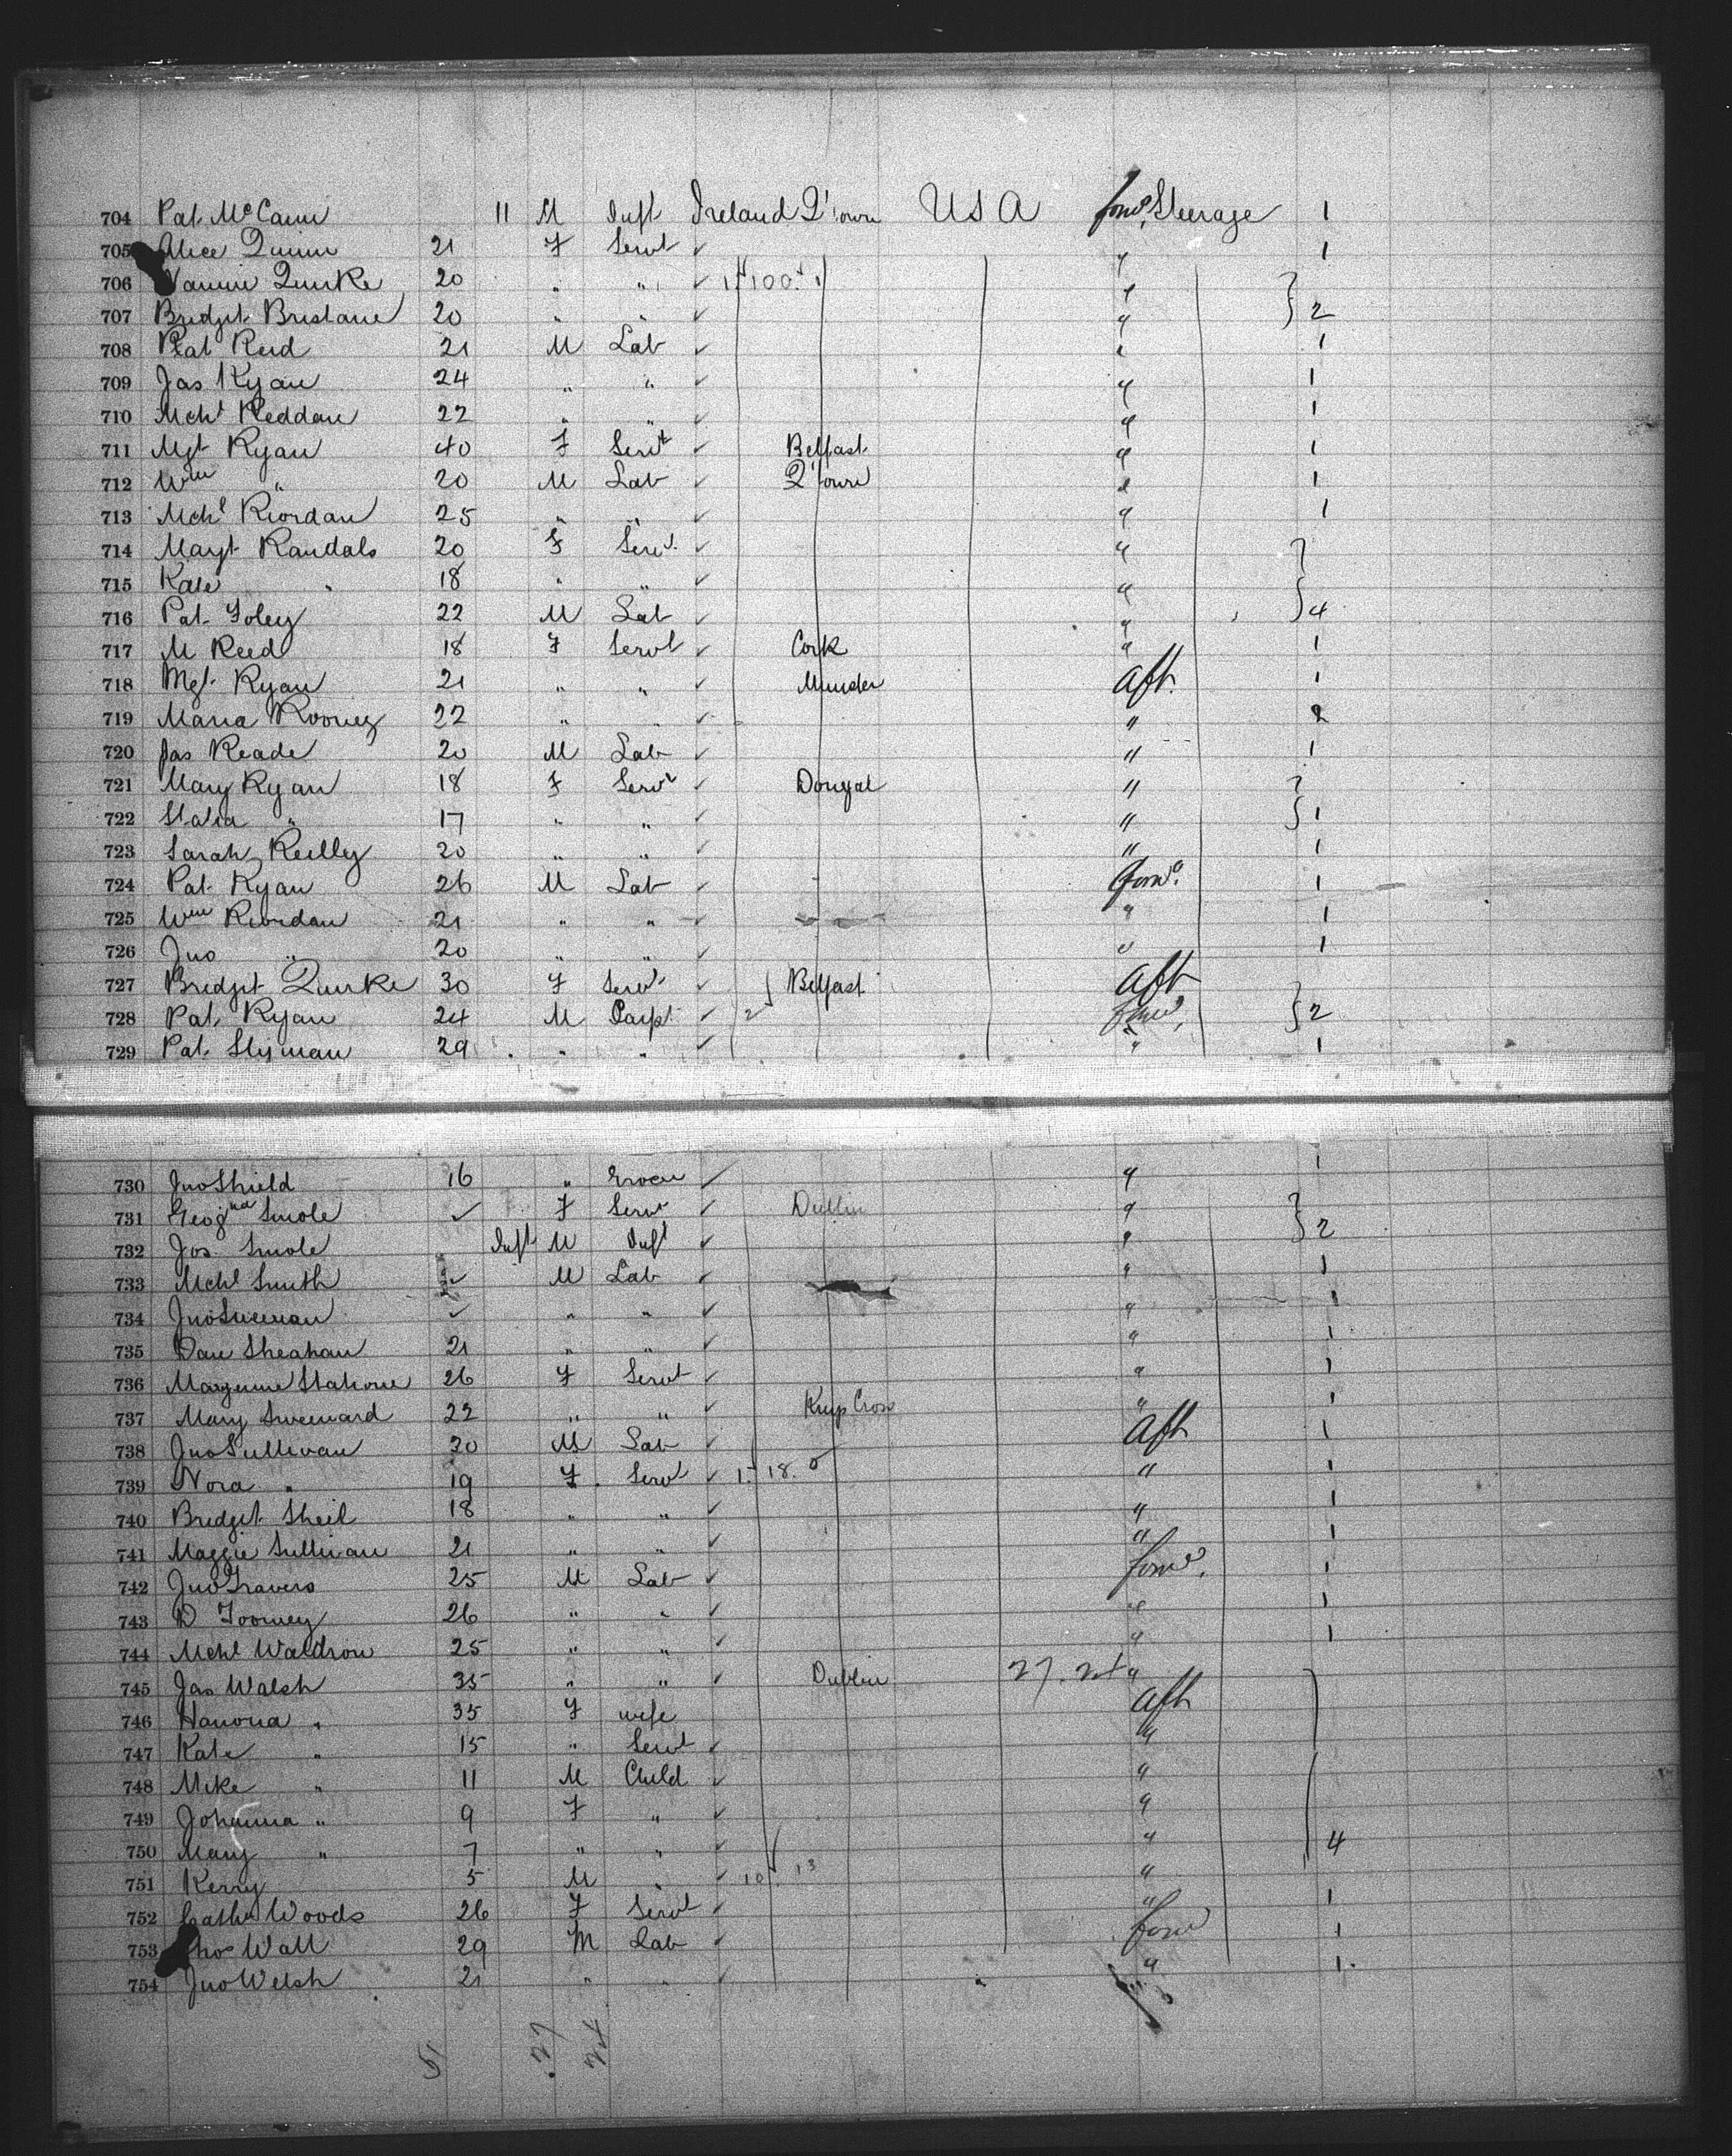 704 Pat. McCann 11 M Inft Ireland Q'town USA forwd Steerage 1
705 Alice Quinn 21 F Servt ✓ " 1
706 Nannie Quirke 20 " " ✓ 1 100. 1 "
707 Bridget Brislane 20 " " ✓ " } 2
708 Pat Reid 21 M Lab ✓ " 1
709 Jas Ryan 24 " " ✓ " 1
710 Mchl Reddan 22 " " ✓ " 1
711 Mgt Ryan 40 F Servt ✓ Belfast " 1
712 Wm " 20 M Lab ✓ Q'town " 1
713 Mchl Riordan 25 " " ✓ " 1
714 Margt Randals 20 F Servt ✓ "
715 Kate " 18 " " ✓ "
716 Pat. Foley 22 M Lab ✓ " } 4
717 M Reed 18 F Servt ✓ Cork " 1
718 Mgt. Ryan 21 " " ✓ Munster aft. 1
719 Maria Rooney 22 " " ✓ " 2
720 Jas Reade 20 M Lab ✓ " 1
721 Mary Ryan 18 F Servt ✓ Dongal "
722 Statia " 17 " " ✓ " } 1
723 Sarah Reilly 20 " " ✓ " 1
724 Pat. Ryan 26 M Lab ✓ forwd. 1
725 Wm Riordan 21 " " ✓ " 1
726 Jno " 20 " " ✓ " 1
727 Bridget Quirke 30 F Servt ✓ Belfast aft
728 Pat. Ryan 24 M Carpt ✓ 2 forwd. } 2
729 Pat. Slyman 29 " " ✓ " 1
730 Jno Shield 16 " Grocer ✓ " 1
731 Geogna Smole ✓ F Servt ✓ Dublin "
732 Jos. Smole Inft M Inft ✓ " } 2
733 Mchl Smith ✓ M Lab ✓ " 1
734 Jno ✓ " " ✓ " 1
735 Dan Sheahan 21 " " ✓ " 1
736 Stahone 26 F Servt ✓ " 1
737 Mary Sweenard 22 " " ✓ " 1
738 Jno Sullivan 30 M Lab ✓ aft 1
739 Nora " 19 F Servt ✓ 1. 18. " 1
740 Bridget Sheil 18 " " ✓ " 1
741 Maggie Sullivan 21 " " ✓ " 1
742 Jno Travers 25 M Lab ✓ forwd. 1
743 D Toomey 26 " " ✓ " 1
744 Mchl Waldron 25 " " ✓ " 1
745 Jas Walsh 35 " " ✓ Dublin 27. 24 "
746 Hanoria " 35 F wife aft
747 Kate " 15 " Servt ✓ "
748 Mike " 11 M Child ✓ "
749 Johanna " 9 F " ✓ "
750 Mary " 7 " " ✓ " 4
751 Kerry 5 M " ✓ 10 13 "
752 Cath Woods 26 F Servt ✓ " 1
753 Thos Wall 29 M Lab ✓ forwd 1
754 Jno Welsh 21 " " ✓ " 1.
27 24